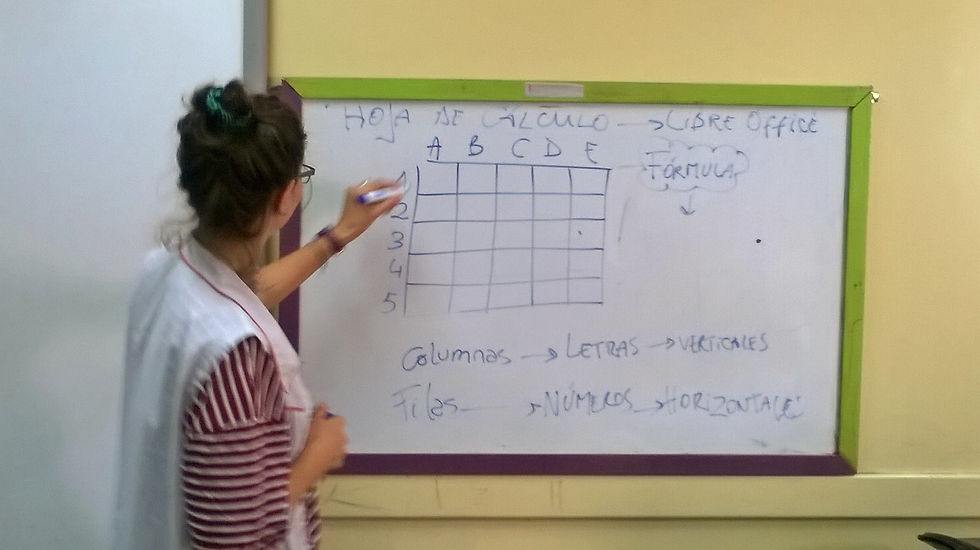 HOJA DE CALCULO → LIBRE OFFICE
A B C D E
FÓRMULA
↓
1
2
3
4
5
Columnas → LETRAS → VERTICALES
Filas → NÚMEROS → HORIZONTALE